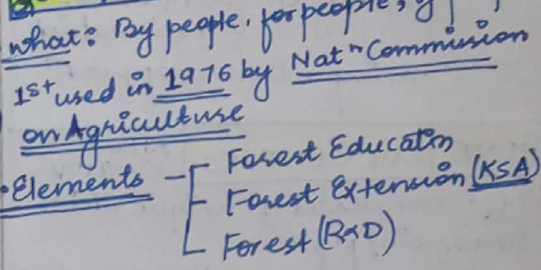 what: By people, for people,
1st used in 1976 by Natⁿ Commission
on Agriculture
• Elements - Forest Educatn
Forest Extension (KSA)
Forest (R&D)